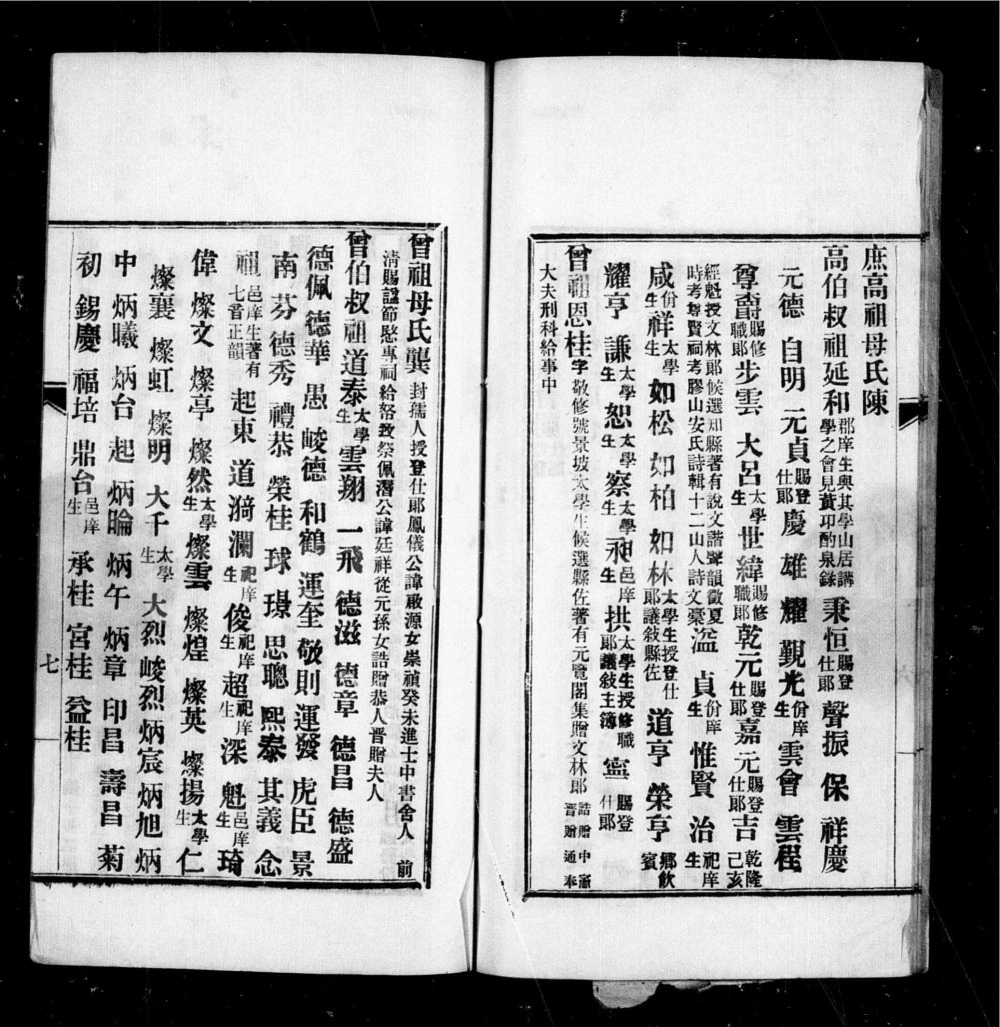 庶高祖母氏陳
高伯叔祖延和郡庠生與其學山居講學之會見黃卬酌泉錄 秉恒賜登仕郎 聲振 保 祥慶
元德 自明 元貞賜登仕郎 慶 雄 耀 觀光份庠生 雲會 雲程
尊爵賜修職郎 步雲 大呂太學生 世緯賜修職郎 乾元賜登仕郎 嘉元賜登仕郎 吉乾隆己亥
經魁授文林郎候選知縣著有說文諧聲韻徵夏時考尊賢祠考膠山安氏詩輯十二山人詩文稾 溢 貞份庠生 惟賢 治祀庠生
咸份生 祥太學生 如松 如柏 如林太學生授登仕郎議敍縣佐 道亨 榮亨鄉飲賓
耀亨 謙太學生 恕太學生 察太學生 昶邑庠生 拱太學生授修職郎議敍主簿 寍賜登仕郎
曾祖恩桂字敬修號景坡太學生候選縣佐著有元覽閣集贈文林郎誥贈中憲晋贈通奉
大夫刑科給事中
曾祖母氏龔封孺人授登仕郎鳳儀公諱啟源女崇禎癸未進士中書舍人前
清賜諡節愍專祠給帑致祭佩潛公諱廷祥從元孫女誥贈恭人晋贈夫人
曾伯叔祖道泰太學生 雲翔 一飛 德滋 德章 德昌 德盛
德佩 德華 愚 峻德 和鶴 運奎 敬則 運發 虎臣 景
南 芬 德秀 禮恭 榮桂 球 璟 思聰 熙泰 其義 念
祖邑庠生著有七音正韻 起東 道漪 瀾祀庠生 俊祀庠生 超祀庠生 深 魁邑庠生 琦
偉 燦文 燦亭 燦然太學生 燦雲 燦煌 燦英 燦揚太學生 仁
燦襄 燦虹 燦明 大千太學生 大烈 峻烈 炳宸 炳旭 炳
中 炳曦 炳台 起 炳曉 炳午 炳章 印昌 壽昌 菊
初 錫慶 福培 鼎台邑庠生 承桂 宮桂 益桂
七